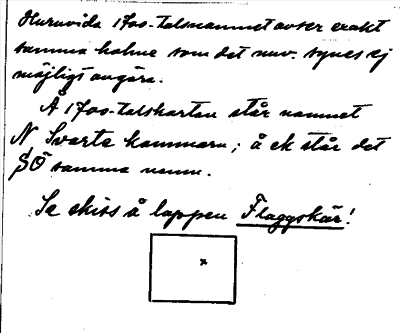 Huruvida 1700-talsnamnet avser exakt
samma holme som det nuv. synes ej
möjligt avgöra.
Å 1700-talskartan står namnet
N Svarte kammarn; å ek står det
SÖ samma namn.
Se skiss å lappen Flaggskär!
x